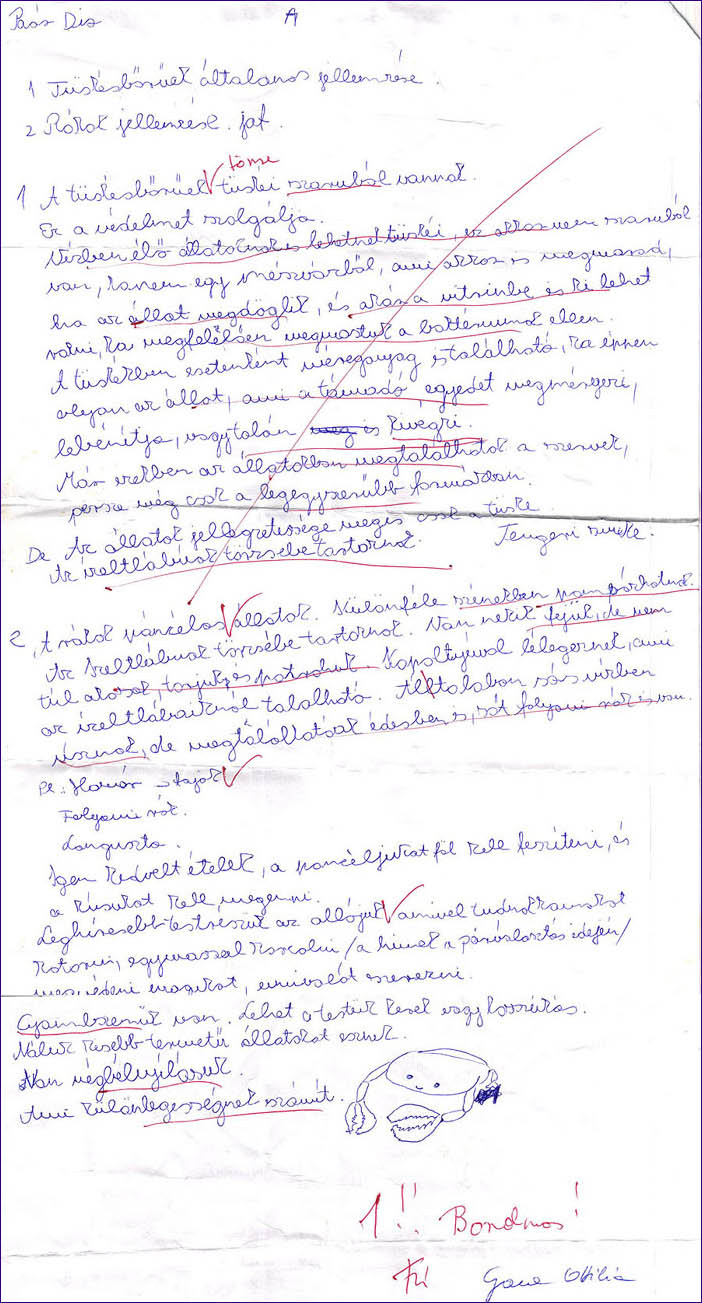 Paós Dia A
1 Tüskésbőrűek általános jellemzése.
2 Rákok jellemzése. jaf.
tömör
1 A tüskésbőrűek tüskéi szaruból vannak.
Ez a védelmet szolgálja.
Vízben élő állatoknak is lehetnek tüskéi, ez akkor nem szaruból
van, hanem egy mészvázból, ami akkor is megmarad,
ha az állat megdöglik, és azán a vitrinbe is ki lehet
rakni, ha megfelelően megmostuk a baktériumok ellen.
A tüskékben esetenként méreganyag is található, ha éppen
olyan az állat, ami a támadó egyedet megmérgezi,
lebénítja, vagy talán is kivégzi.
Már ezekben az állatokban megtalálhatók a szervek,
persze még csak a legegyszerűbb formákban.
De Az állatok jellegzetessége mégis csak a tüske.
Az ízeltlábúak törzsébe tartoznak. Tengeri
2, A rákok páncélos állatok. Különféle színekben pompázhatnak.
Az Ízeltlábúak törzsébe tartoznak. Van nekik fejük, de nem
túl okosak, torjuk és potrohuk. Kopoltyúval lélegeznek, ami
az ízeltlábaiknál található. Álltalában sós vízben
úsznak, de megtalálhatóak édesben is, sőt folyami rák is van.
Pl.: Homár
Folyami rák.
Languszta.
Igen kedvelt ételek, a páncéljukat föl kell feszíteni, és
a húsukat kell megenni.
Leghíresebb testrészük az ollójuk amivel tudnak
kotorni, egymással harcolni /a hímek a párválasztás idején/
megvédeni magukat, ennivalót szerezni.
Gyomszemük van. Lehet a testük kerek vagy hosszúkás.
Náluk kisebb termetű állatokat esznek.
Van végbélnyílásuk.
Ami különlegességnek számít.
1!! Borzalmas!
Gane Ottilia